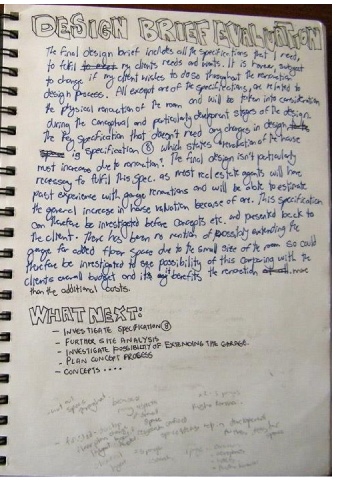 DESIGN BRIEF EVALUATION
The final design brief includes all the specifications that I need,
to fulfil my clients needs and wants. It is however, subject
to change if my client wishes to do so throughout the renovation
design process. All except one of the specifications, are related to
the physical renovation of the room and will be taken into consideration
during the conceptual and particularly development stages of the design.
The key specification that doesn't need any changes in design
is specification 8 which states the valuation of the house
must increase due to renovation. The final design isn't particularly
necessary to fulfil this spec. as most real estate agents will have
past experience with garage renovations and will be able to estimate
the general increase in house valuation because of one. This specification
can therefore be investigated before concepts etc. and presented back to
the client. There has been no mention of possibly extending the
garage for added floor space due to the small size of the room so could
therefore be investigated to see possibility of this comparing with the
clients overall budget and its benefits the renovation more
than the additional costs.
WHAT NEXT:
- INVESTIGATE SPECIFICATION 8
- FURTHER SITE ANALYSIS
- INVESTIGATE POSSIBILITY OF EXTENDING THE GARAGE.
- PLAN CONCEPT PROCESS
- CONCEPTS ....